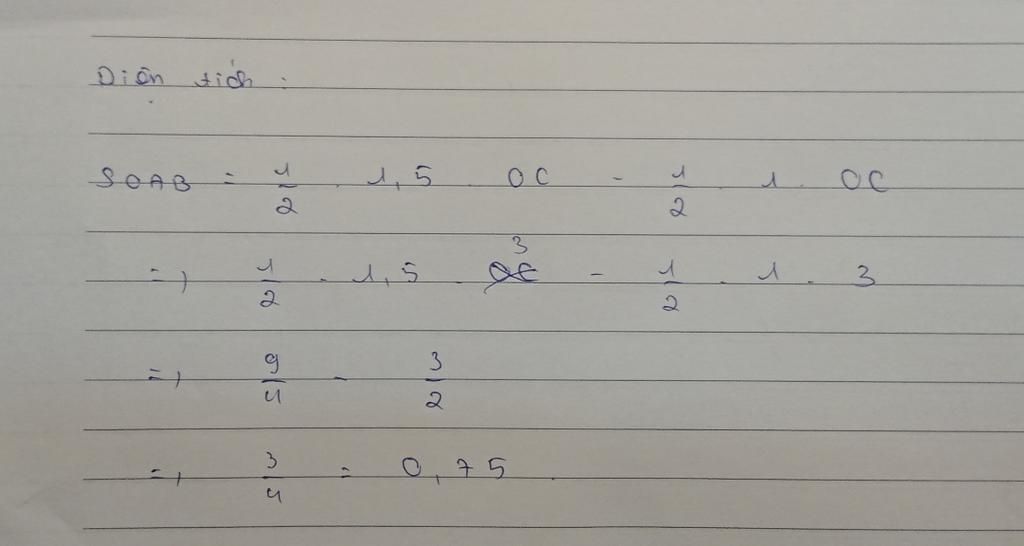 Diện tích :
SOAB = 1/2 . 1,5 . OC - 1/2 . 1 . OC
=, 1/2 . 1,5 . 3 - 1/2 . 1 . 3
=, 9/4 - 3/2
=, 3/4 = 0,75.